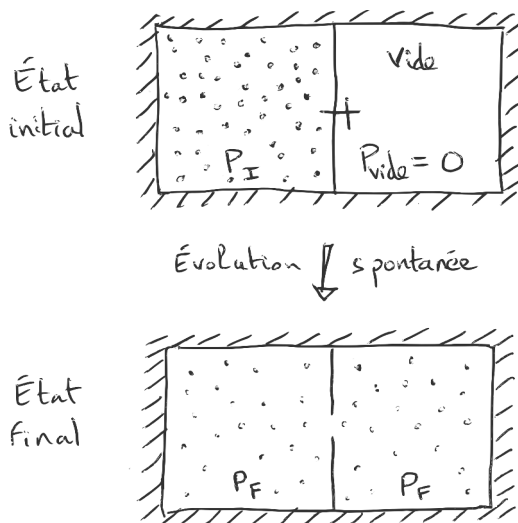 État
initial
vide
P_I
P_vide = 0
Évolution spontanée
État
final
P_F
P_F